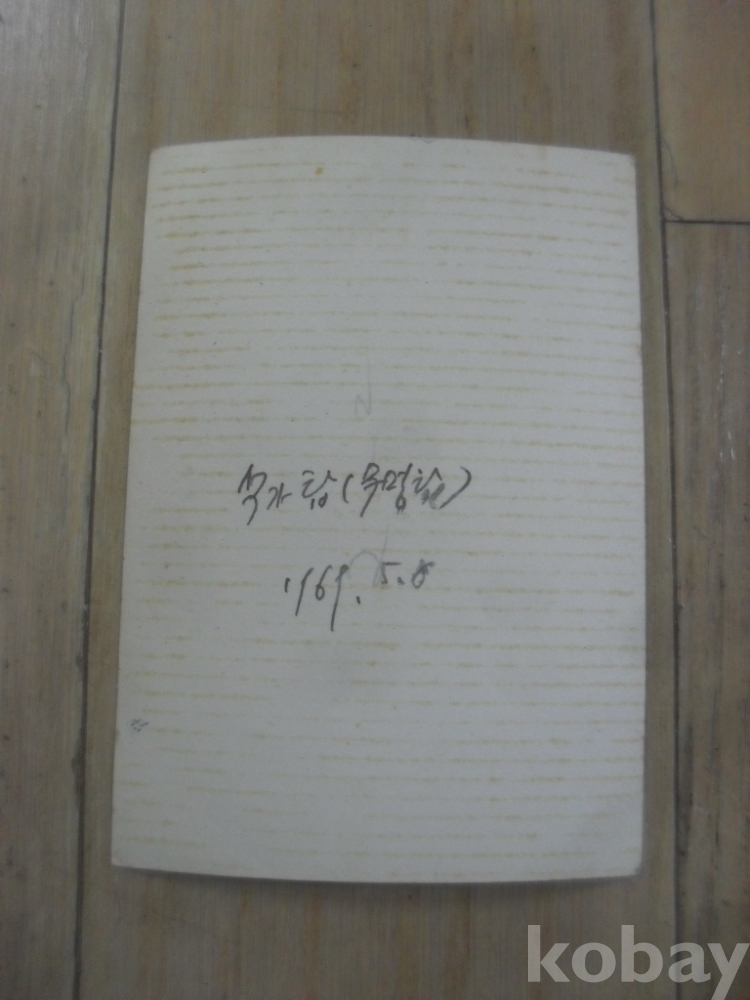 석가탑(무영탑)
1969. 5. 8
kobay